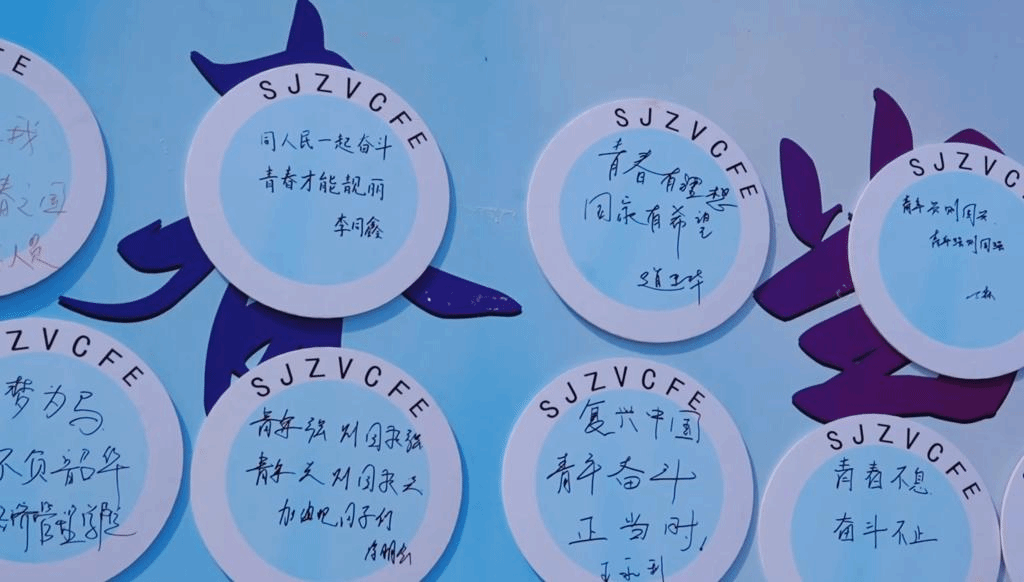 SJZVCFE
同人民一起奋斗
青春才能靓丽
李同鑫
SJZVCFE
青春有理想
国家有希望
SJZVC
青年兴则国兴
青年强则国强
FE
我
春之国
人员
ZVCFE
梦为马
不负韶华
经济管理学院
SJZVCFE
青年强则国家强
青年兴则国家兴
加油吧同子们
SJZVCFE
复兴中国
青年奋斗
正当时,
王永利
SJZVCFE
青春不息
奋斗不止